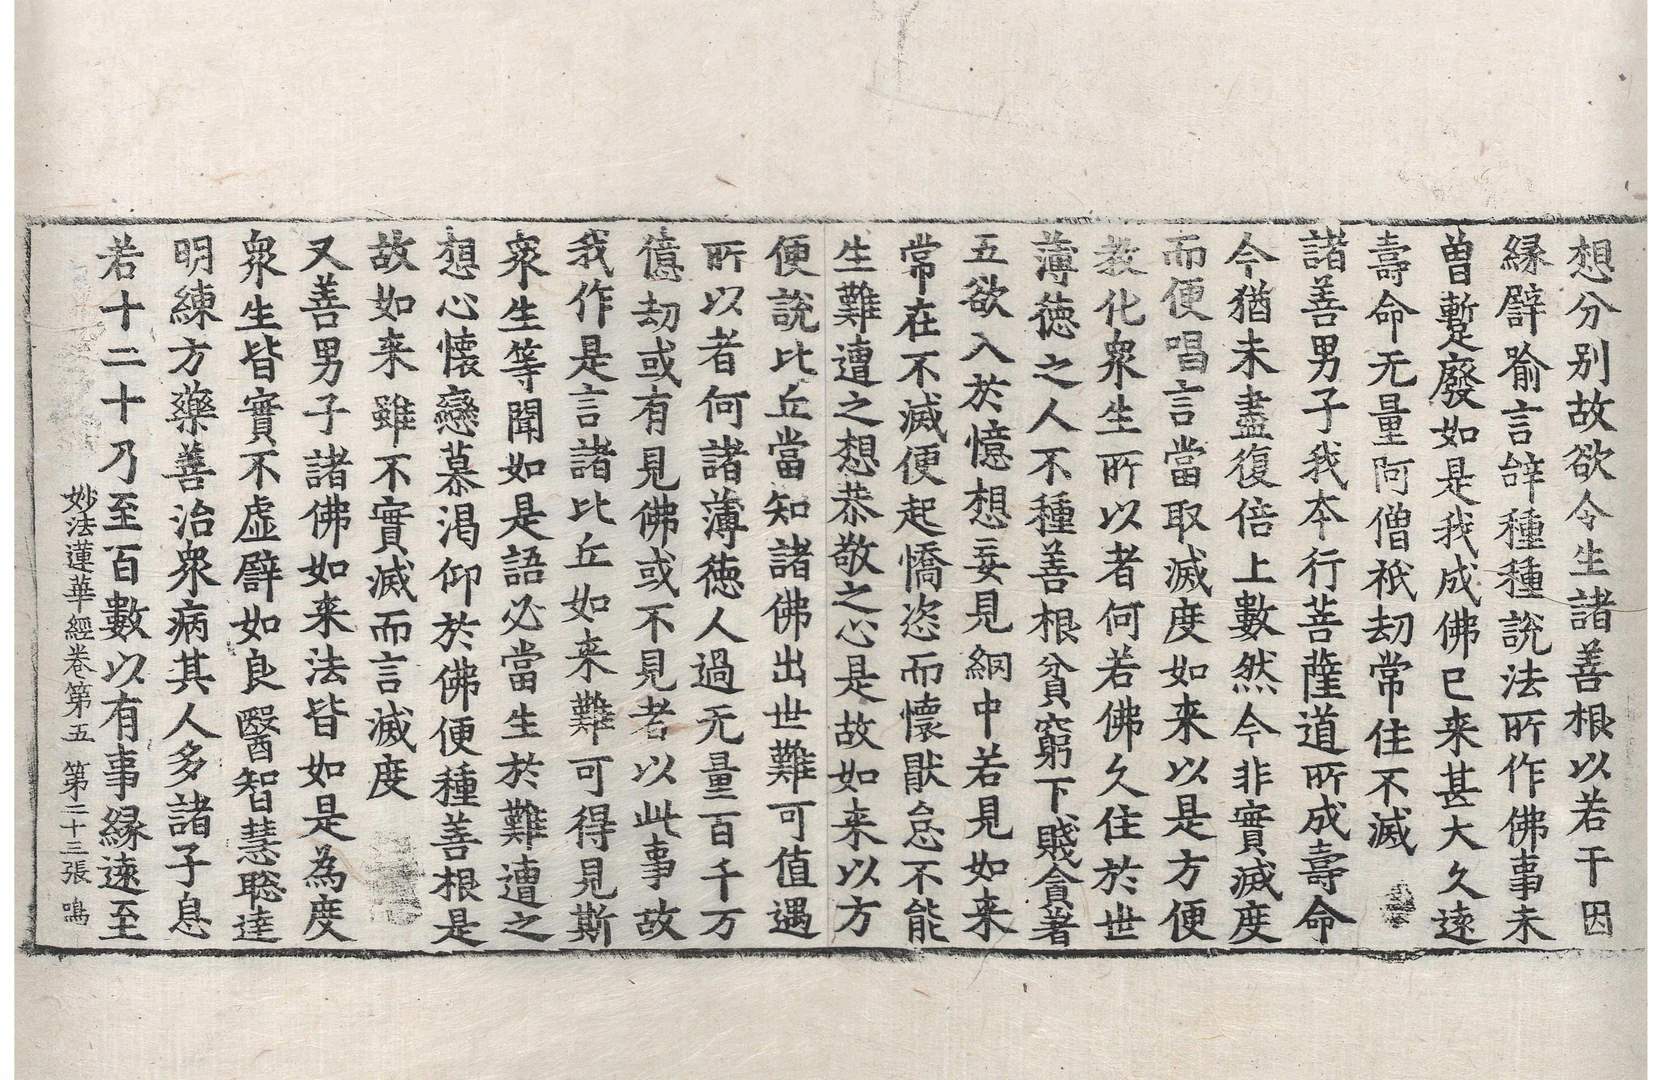 想分別故欲令生諸善根以若干因
縁譬喻言辝種種說法所作佛事未
曾蹔廢如是我成佛已来甚大久遠
壽命无量阿僧祇劫常住不滅
諸善男子我本行菩薩道所成壽命
今猶未盡復倍上數然今非實滅度
而便唱言當取滅度如来以是方便
教化衆生所以者何若佛久住於世
薄德之人不種善根貧窮下賤貪著
五欲入於憶想妄見網中若見如来
常在不滅便起憍恣而懷猒怠不能
生難遭之想恭敬之心是故如来以方
便說比丘當知諸佛出世難可值遇
所以者何諸薄德人過无量百千万
億劫或有見佛或不見者以此事故
我作是言諸比丘如来難可得見斯
衆生等聞如是語必當生於難遭之
想心懷戀慕渴仰於佛便種善根是
故如来雖不實滅而言滅度
又善男子諸佛如来法皆如是為度
衆生皆實不虚譬如良醫智慧聡達
明練方藥善治衆病其人多諸子息
若十二十乃至百數以有事縁遠至
妙法蓮華經卷第五 第二十三張 鳴